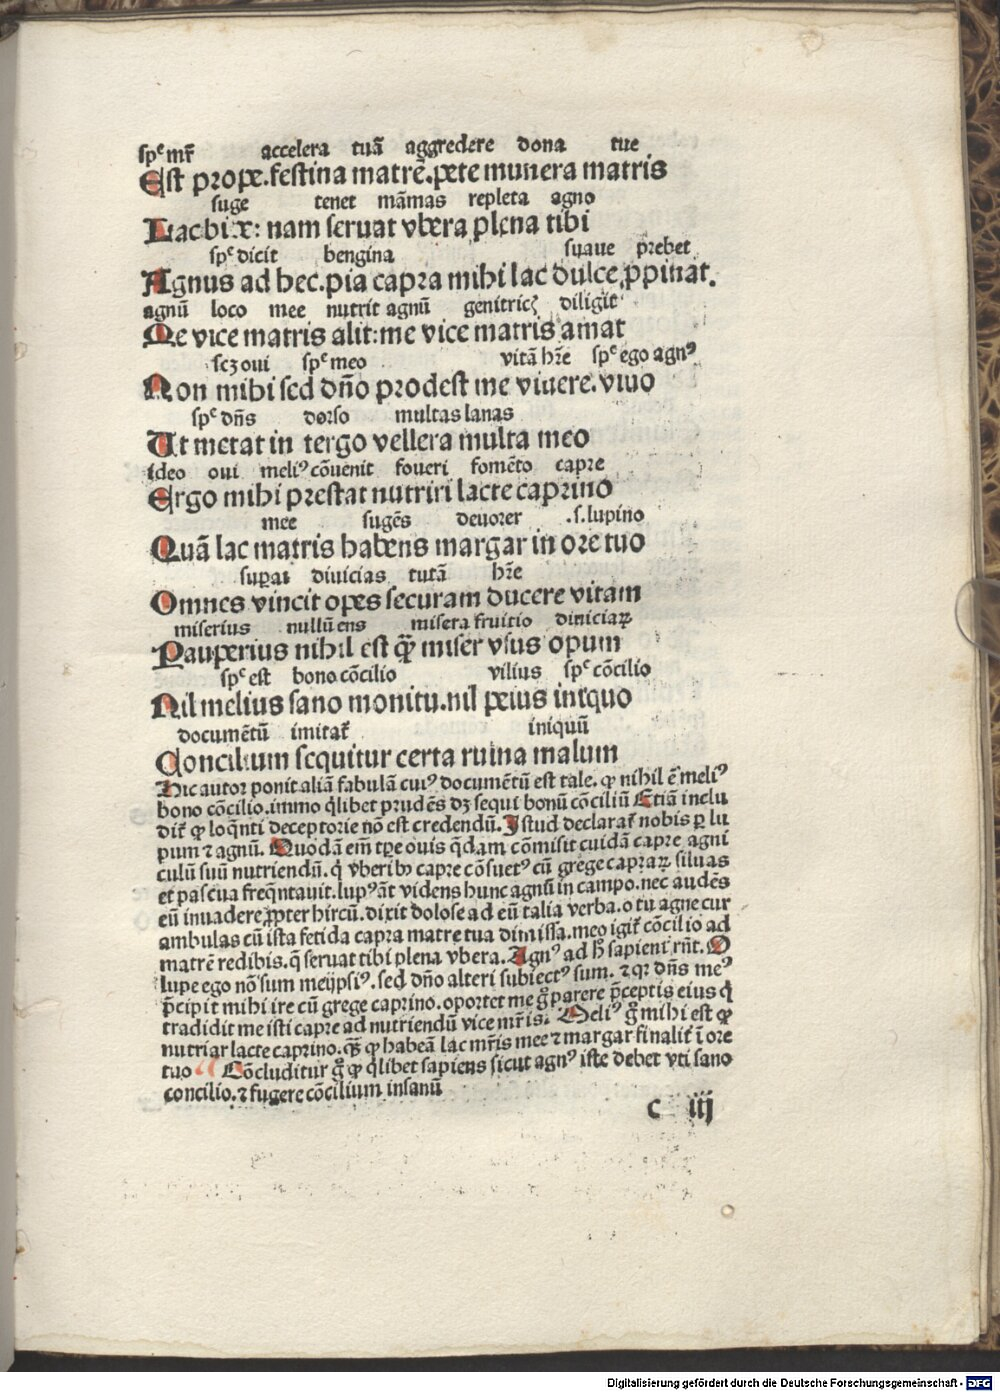 spᵉ mr̄ accelera tuā aggredere dona tue
Est prope.festina matrē.pete munera matris
suge tenet māmas repleta agno
Lac bibe: nam seruat vbera plena tibi
spᵉ dicit benigna suaue prebet
Agnus ad hec.pia capra mihi lac dulce ꝓpinat.
agnū loco mee nutrit agnū genitricꝭ diligit
Me vice matris alit:me vice matris amat
scꝫ oui spᵉ meo vitā hr̄e spᵉ ego agnꝰ
Non mihi sed dn̄o prodest me viuere.viuo
spᵉ dn̄s dorso multas lanas
Ut metat in tergo vellera multa meo
ideo oui meliꝰ cōuenit foueri fomēto capre
Ergo mihi prestat nutriri lacte caprino
mee sugēs deuorer .s.lupino
Quā lac matris habens margar in ore tuo
suꝑat diuicias tutā hr̄e
Omnes vincit opes securam ducere vitam
miserius nullū ens misera fruitio diuiciaꝝ
Pauperius nihil est ꝙ̄ miser vsus opum
spᵉ est bono cōcilio vilius spᵉ cōcilio
Nil melius sano monitu.nil peius iniquo
documētū imitat̄ iniquū
Concilium sequitur certa ruina malum
Hic autor ponit aliā fabulā cuiꝰ documētū est tale. ꝙ nihil ē meliꝰ
bono cōcilio.immo q̇libet prudēs dꝫ sequi bonū cōciliū Etiā inclu
dit̄ ꝙ loq̄nti deceptorie nō est credendū. Istud declarat̄ nobis ꝑ lu
pum ⁊ agnū. Quodā em̄ tꝑe ouis q̄dam cōmisit cuidā capre agni
culū suū nutriendū.q̇ vberibꝰ capre cōsuetꝰ cū grege capraꝝ siluas
et pascua freq̄ntauit.lupꝰ āt videns hunc agnū in campo.nec audēs
eū inuadere ꝓpter hircū.dixit dolose ad eū talia verba.o tu agne cur
ambulas cū ista fetida capra matre tua dimissa.meo igit̄ cōcilio ad
matrē redibis.q̄ seruat tibi plena vbera. Agnꝰ ad h̄ sapienter rn̄t. O
lupe ego nō sum meijpsiꝰ.sed dn̄o alteri subiectꝰ sum. ⁊ qꝛ dn̄s meꝰ
p̄cipit mihi ire cū grege caprino.oportet me g̊ parere p̄ceptis eius q̇
tradidit me isti capre ad nutriendū vice mr̄is. Meliꝰ g̊ mihi est ꝙ
nutriar lacte caprino.qȝ̄ ꝙ habeā lac mr̄is mee ⁊ margar finalit̄ ī ore
tuo Cōcluditur g̊ ꝙ q̇libet sapiens sicut agnꝰ iste debet vti sano
concilio.⁊ fugere cōcilium insanū
c iij
Digitalisierung gefördert durch die Deutsche Forschungsgemeinschaft - DFG